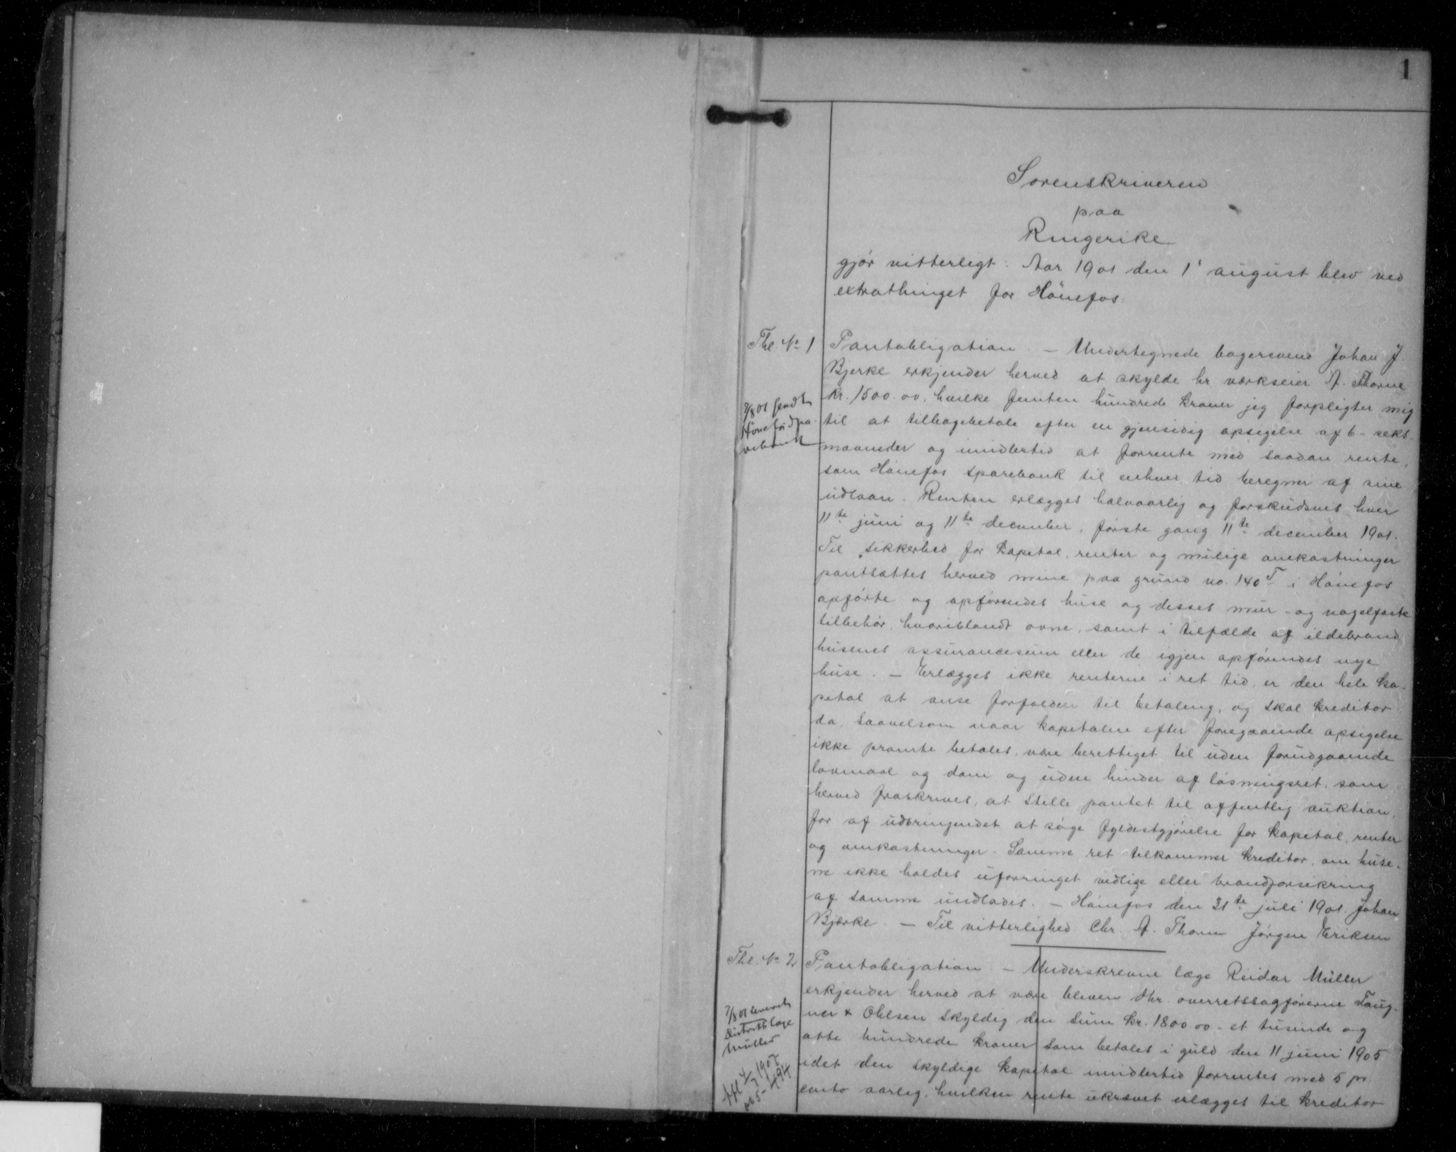 1
Sorenskriveren
paa
Ringerike
gjør vitterligt: Aar 1901 den 1' august blev ved
extrathinget for Hönefos:
Thl. No 1
Pantobligation. — Undertegnede bagersvend Johan J.
Bjerke erkjender herved at skylde hr værkseier A. Thorne
kr. 1500.00, hvilke femten hundrede kroner jeg forpligter mig
til at tilbagebetale efter en gjensidig opsigelse af 6 - seks
maaneder og imidlertid at forrente med saadan rente,
som Hönefos sparebank til enhver tid beregner af sine
udlaan. Renten erlægges halvaarlig og forskudsvis hver
11te juni og 11te december, første gang 11te december 1901.
Til sikkerhed for kapital, renter og mulige omkostninger
pantsættes herved mine paa grund no. 140 i Hönefos
opførte og opførendes huse og disses mur- og nagelfaste
tilbehør, hvoriblandt ovne, samt i tilfælde af ildebrand
husenes assurancesum eller de igjen opførendes nye
huse. — Erlægges ikke renterne i ret tid, er den hele ka-
pital at anse forfalden til betaling, og skal kreditor
da, saavelsom naar kapitalen efter foregaaende opsigelse
ikke promte betales, være berettiget til uden forudgaaende
lovmaal og dom og uden hinder af løsningsret, som
herved fraskrives, at stille pantet til offentlig auktion,
for af udbringendet at søge fyldestgjørelse for kapital, renter
og omkostninger. Samme ret tilkommer kreditor, om huse-
ne ikke holdes uforringet vedlige eller brandforsikring
af samme undlades. — Hönefos den 31te juli 1901. Johan
Bjerke. — Til vitterlighed Chr. A. Thorne Jørgen Eriksen
2/8 01 sendt
Thl. No 2
Pantobligation — Underskrevne læge Reidar Müller
erkjender herved at være bleven dhr. overretssagførerne Faug-
ner & Ohlsen skyldig den sum kr. 1800 00 - et tusinde og
otte hundrede kroner som betales i guld den 11 juni 1905
idet den skyldige kapital imidlertid forrentes med 5 pr
cento aarlig, hvilken rente ukrævet erlægges til kreditor
Distriktslæge
Müller